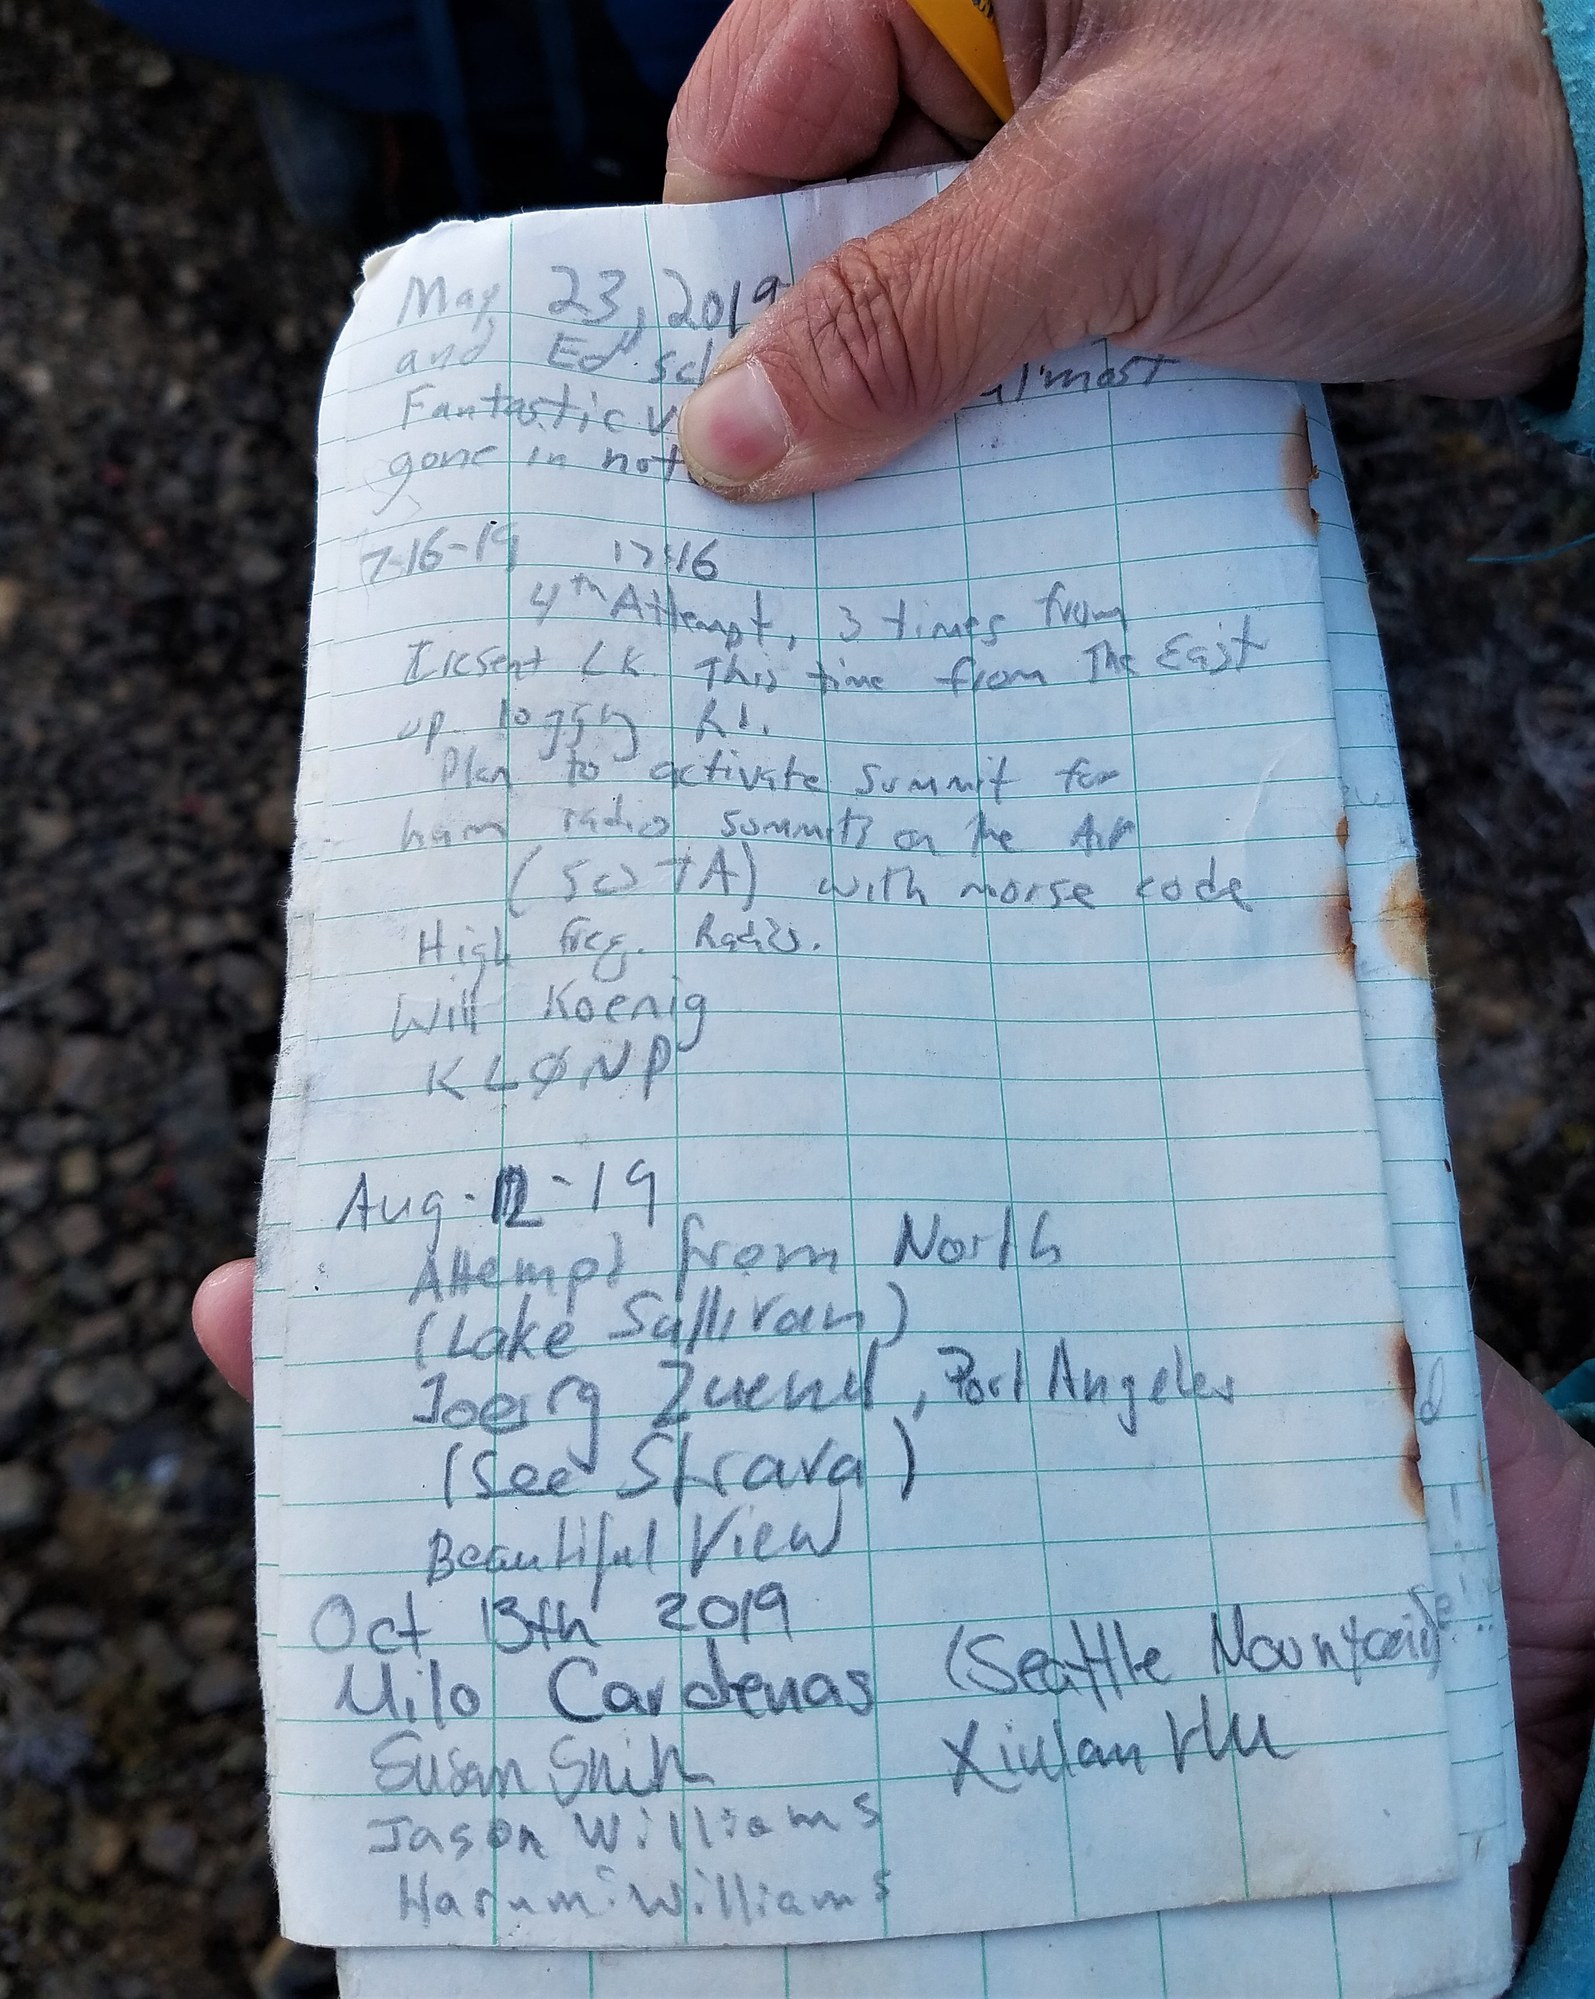 May 23, 2019
and Ed almost
Fantastic
gone in
7-16-19 17:16
4th Attempt, 3 times from
LK. This time from The East
up logging Rd.
Plan to activate summit for
ham radio summits on the Air
(SOTA) with morse code
High freq. Radio.
Will Koenig
KLØNP
Aug-12-19
Attempt from North
(Lake Sullivan)
Joerg Zuend, Port Angeles
(See Strava)
Beautiful View
Oct 13th 2019
Milo Cardenas (Seattle
Susan Shih Xiulan Hu
Jason Williams
Harumi Williams